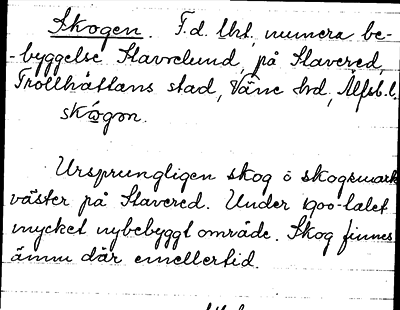 Skogen. F.d. lht, numera be-
-byggelse Slavrelund, på Slavered,
Trollhättans stad, Väne hd, Älfsb. l.
skógon.
Ursprungligen skog o skogsmark
väster på Slavered. Under 1900-talet
mycket nybebyggt område. Skog finnes
ännu där emellertid.